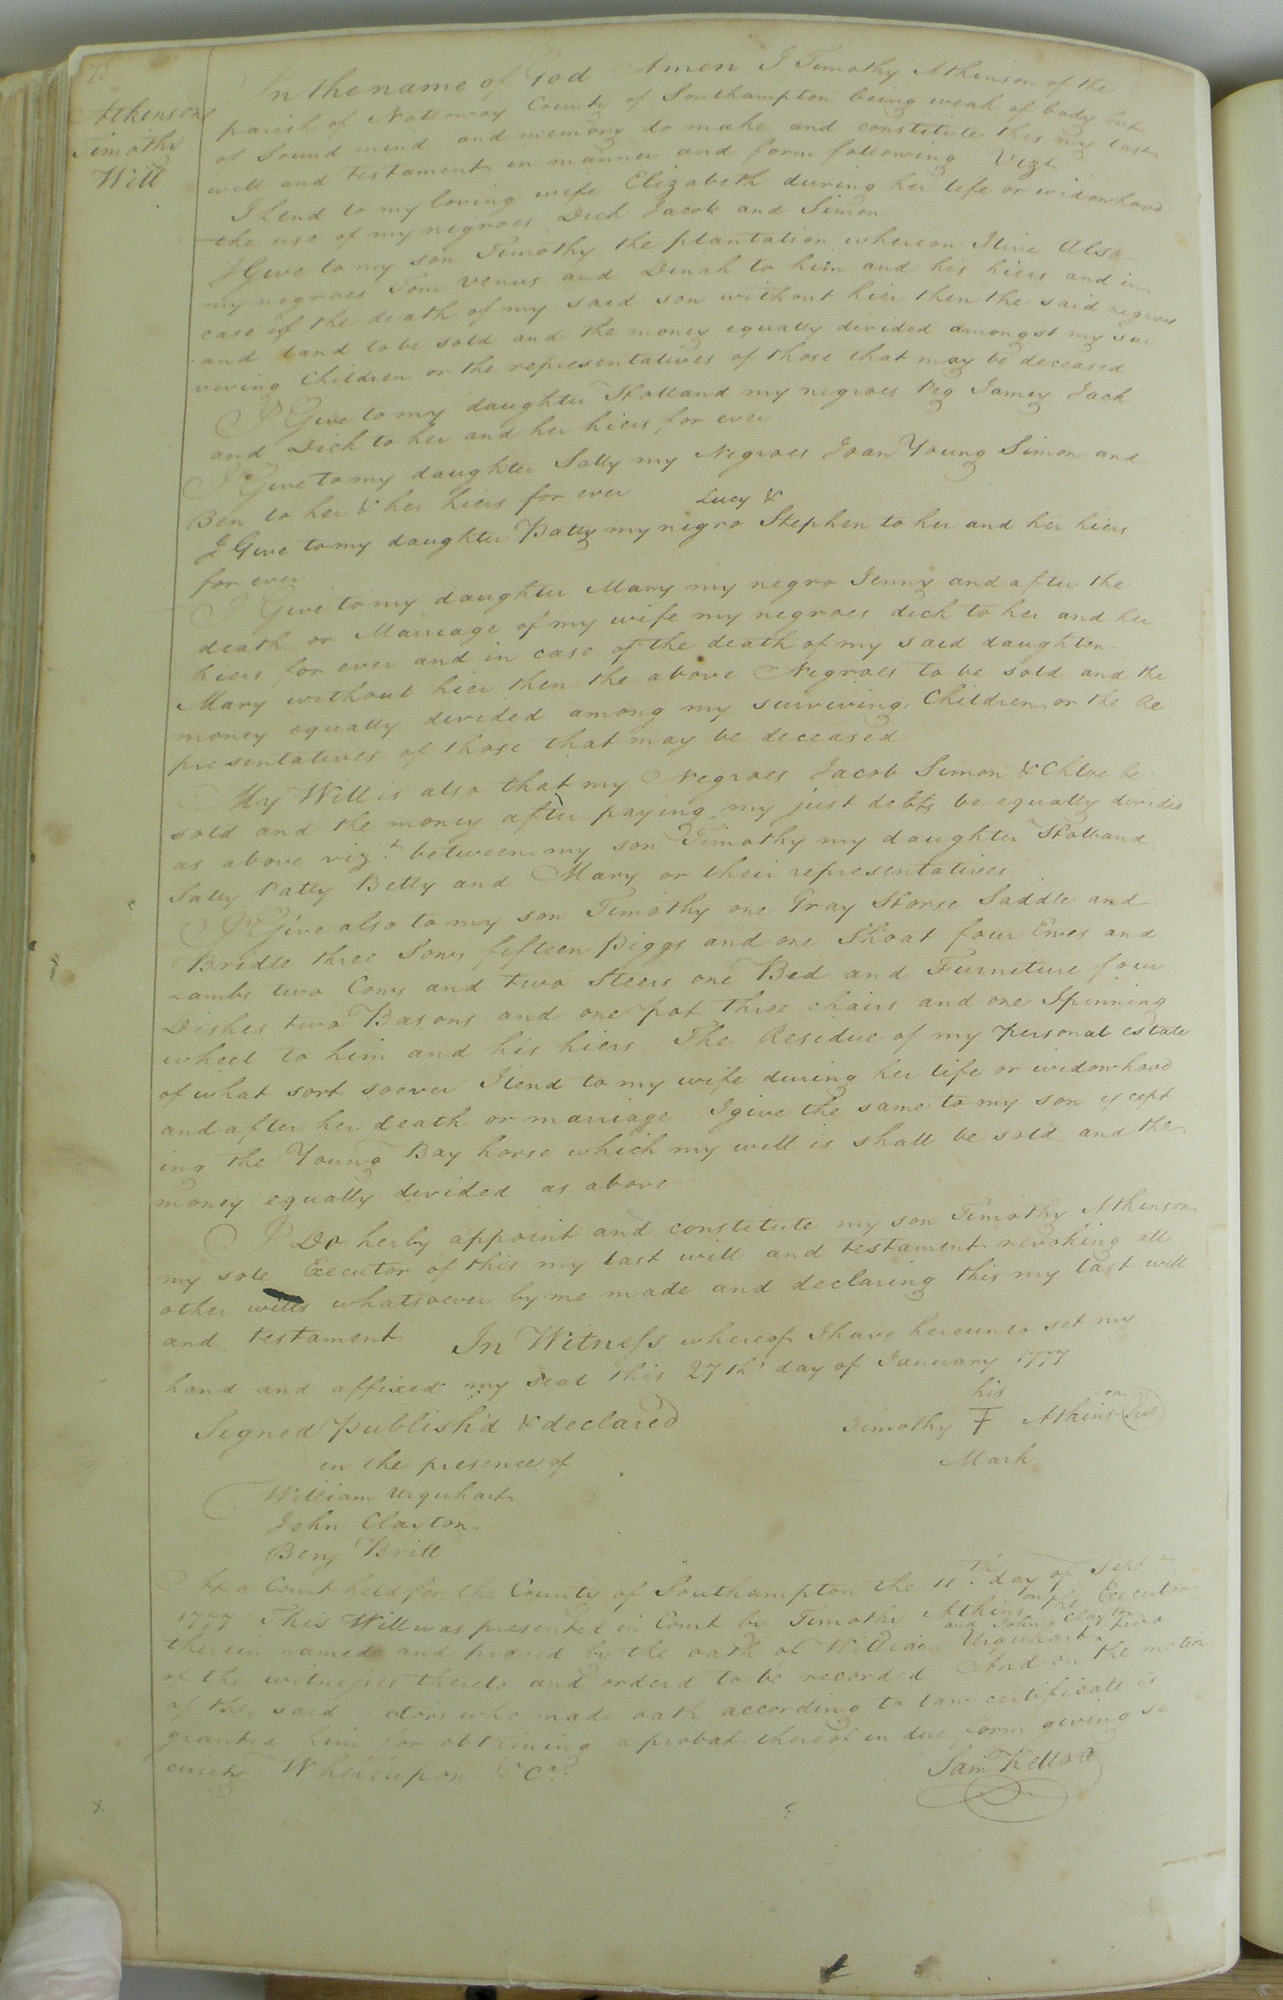 78
Atkinsons
Timothy
Will
In the name of God Amen I Timothy Atkinson of the
parish of Notoway County of Southampton being weak of body but
of Sound mind and memory do make and constitute this my last
will and testament in manner and form following Vizt
I lend to my loving wife Elizabeth during her life or widowhood
the use of my negroes Dick Jacob and Simon
I Give to my son Timothy the plantation whereon I live Also
my negroes Tom Venus and Dinah to him and his hiers and in
case of the death of my said son without hier then the said negroes
and land to be sold and the money equally divided amongst my sur
viving Children or the representatives of those that may be deceased
I Give to my daughter Holland my negroes Peg Jamey Jack
and Dick to her and her hiers for ever
I Give to my daughter Sally my Negroes Joan Young Simon and
Ben to her & her hiers for ever
Lucy &
I Give to my daughter Patty my negro Stephen to her and her hiers
for ever
I Give to my daughter Mary my negro Jenny and after the
death or Marriage of my wife my negroes dick to her and her
hiers for ever and in case of the death of my said daughter
Mary without hier then the above Negroes to be sold and the
money equally divided among my surviving Children or the Re
presentatives of those that may be deceased
My Will is also that my Negroes Jacob Simon & Chloe be
sold and the money after paying my just debts be equally divided
as above vizt between my son Timothy my daughter Holland
Sally Patty Betty and Mary or their representatives
I Give also to my son Timothy one Gray Horse Saddle and
Bridle three Sows fifteen Piggs and one Shoat four Ewes and
Lambs two Cows and two Steers one Bed and Furniture four
Dishes two Basons and one pot three chairs and one Spinning
wheel to him and his hiers The Residue of my personal estate
of what sort soever I lend to my wife during her life or widowhood
and after her death or marriage I give the same to my son except
ing the Young Bay horse which my will is shall be sold and the
money equally divided as above
I Do herby appoint and constitute my son Timothy Atkinson
my sole Executor of this my last will and testament revoking all
other wills whatsoever by me made and declaring this my last will
and testament In Witness whereof I have hereunto set my
hand and affixed my seal this 27th day of January 1777
his
Signed Publish'd & declared Timothy F Atkinson Seal
in the presence of Mark
William Urquhart
John Clayton
Benj Britt
At a Court held for the County of Southampton the 11th day of Sept
1777 This Will was presented in Court by Timothy Atkinson the Executor
and John Clayton
therein named and proved by the oath of William Urquhart two
of the witnesses thereto and orderd to be recorded And on the motion
of the said ctors who made oath according to law certificate is
granted him for obtaining a probat thereof in due form giving se
curity Whereupon &Ca
Sam Kello